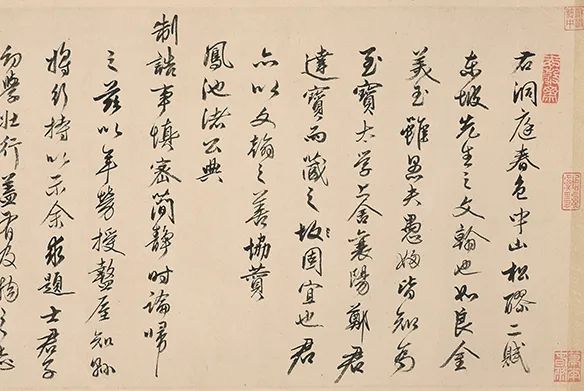 右洞庭春色中山松醪二賦
東坡先生之文翰也如良金
美玉雖愚夫愚婦皆知為
至寶太學上舍襄陽鄭君
達寶而藏之故固宜也君
亦以文翰之善協贊
鳳池諸公典
制誥事慎密簡靜時論歸
之茲以年勞授盩厔知縣
將行持以示余求題士君子
幼學壯行蓋有及物之志